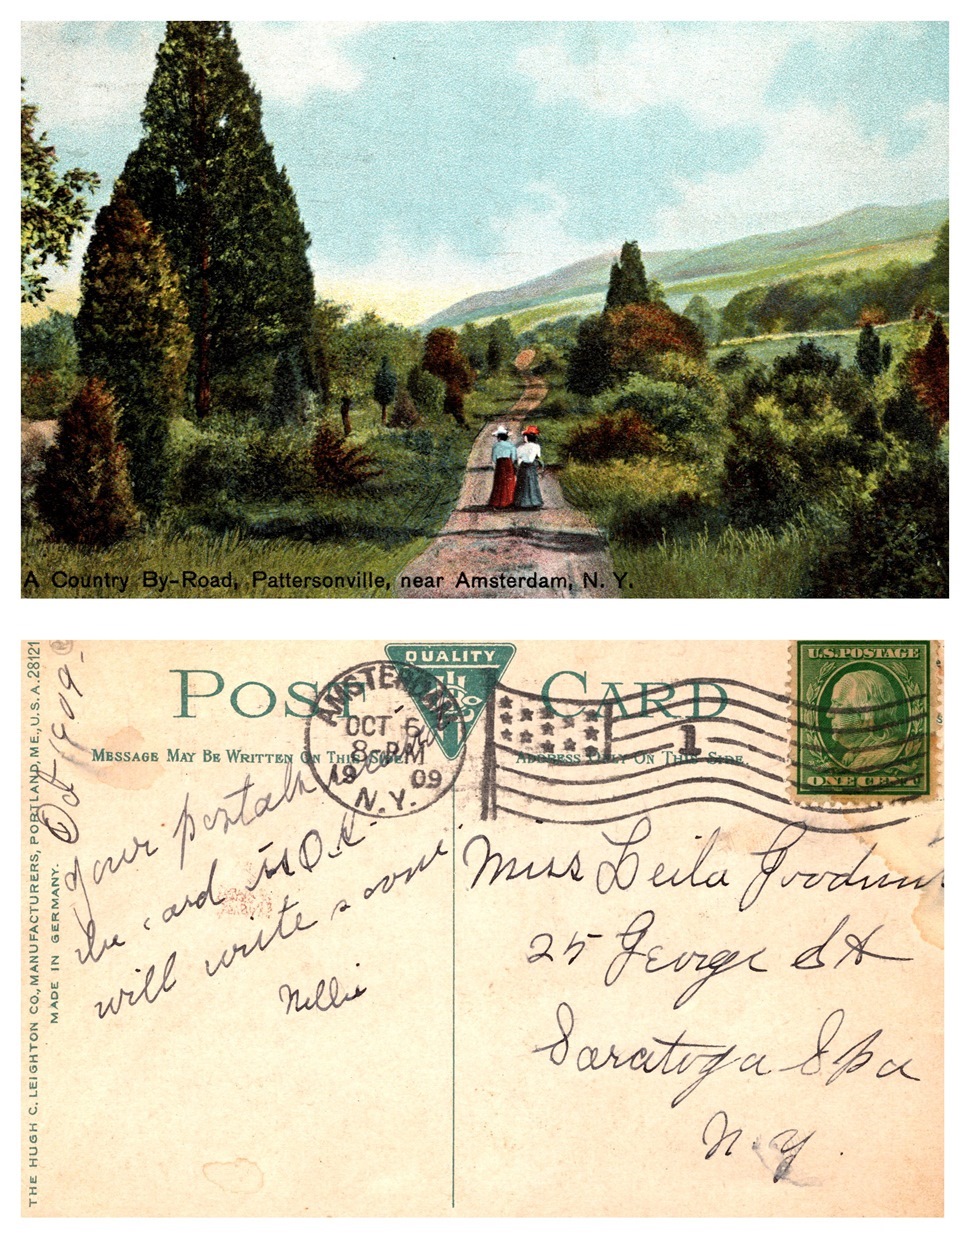 A Country By-Road, Pattersonville, near Amsterdam, N. Y.
THE HUGH C. LEIGHTON CO., MANUFACTURERS, PORTLAND, ME., U.S.A. 28121
MADE IN GERMANY.
QUALITY
POST CARD
MESSAGE MAY BE WRITTEN ON THIS SIDE.
ADDRESS ONLY ON THIS SIDE.
AMSTERDAM
OCT 6
8 - PM
19 09
N.Y.
1
U.S. POSTAGE
ONE CENT
Oct 1909.
your postalk
the card is O.K.
will write soone
Nellie
Miss Leila
25 George St
Saratoga Spa
N. Y.